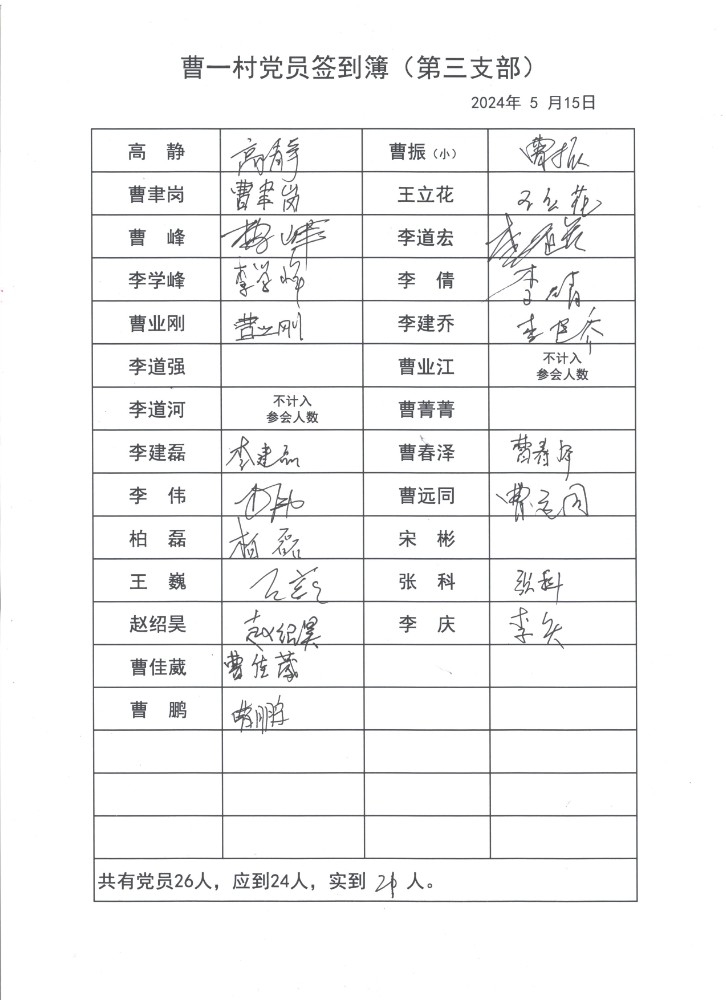 曹一村党员签到簿（第三支部）
2024年 5 月15日
高 静 高静 曹振（小） 曹振
曹聿岗 曹聿岗 王立花 王立花
曹 峰 曹峰 李道宏 李道宏
李学峰 李学峰 李 倩 李倩
曹业刚 曹业刚 李建乔 李建乔
李道强 曹业江 不计入
参会人数
李道河 不计入
参会人数 曹菁菁
李建磊 李建磊 曹春泽 曹春泽
李 伟 曹远同 曹远同
柏 磊 柏磊 宋 彬
王 巍 张 科 张科
赵绍昊 赵绍昊 李 庆 李庆
曹佳葳 曹佳葳
曹 鹏 曹鹏
共有党员26人，应到24人，实到 人。